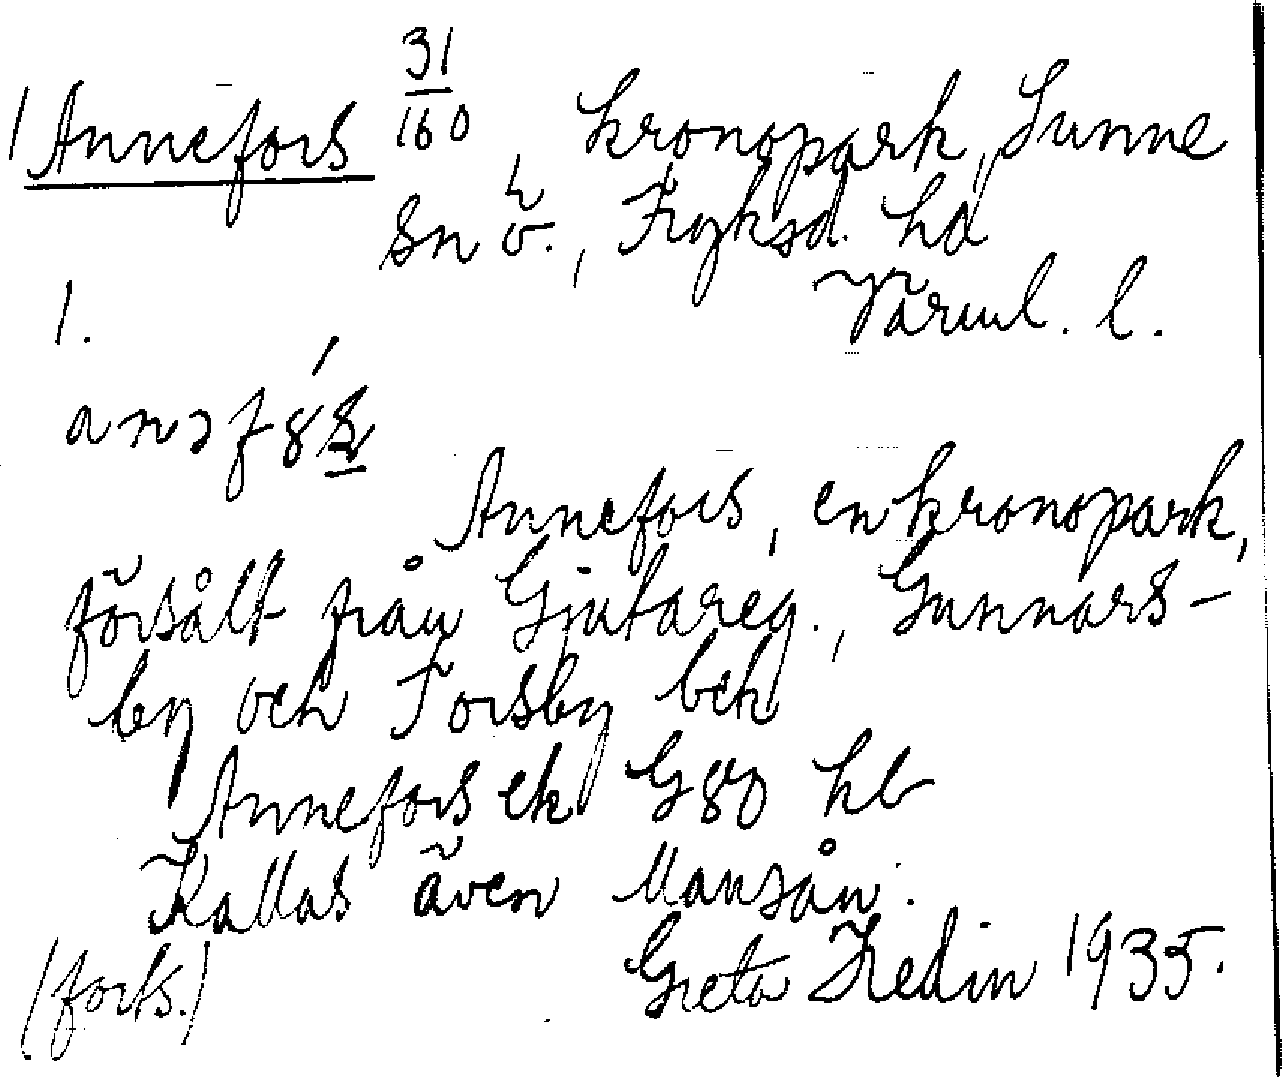 1 Annefors 31/160, kronopark, Sunne
sn ö., Fryksd. hd
Värml. l.
1.
Annefors, en kronopark,
försålt från Gjutareg., Gunnars-
by och Torsby beh
Annefors ek G 80 kb
Kallas även Mansån.
(forts.) Greta Hedin 1935.